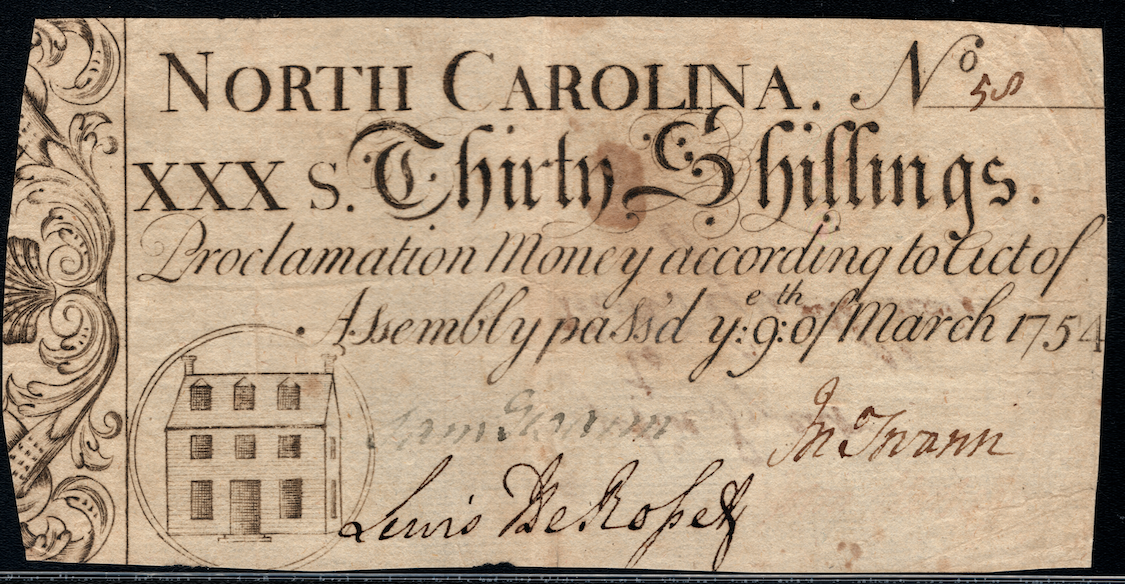 NORTH CAROLINA. No 58
XXX S. Thirty Shillings.
Proclamation Money according to Act of
Assembly pass'd ye: 9th: of March 1754
Jno Swann
Lewis DeRosset